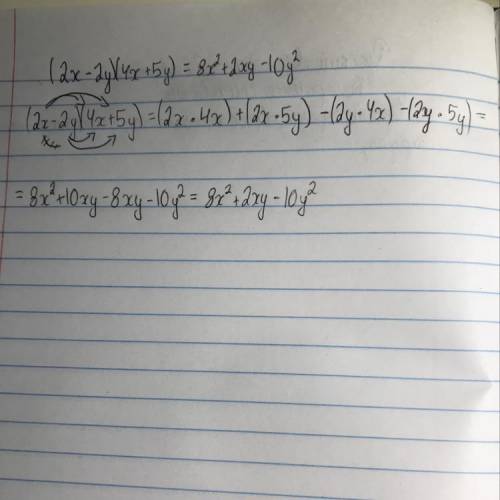 (2x-2y)(4x+5y) = 8x²+2xy-10y²
(2x-2y)(4x+5y) = (2x·4x)+(2x·5y) -(2y·4x) -(2y·5y) =
= 8x²+10xy-8xy-10y² = 8x²+2xy-10y²